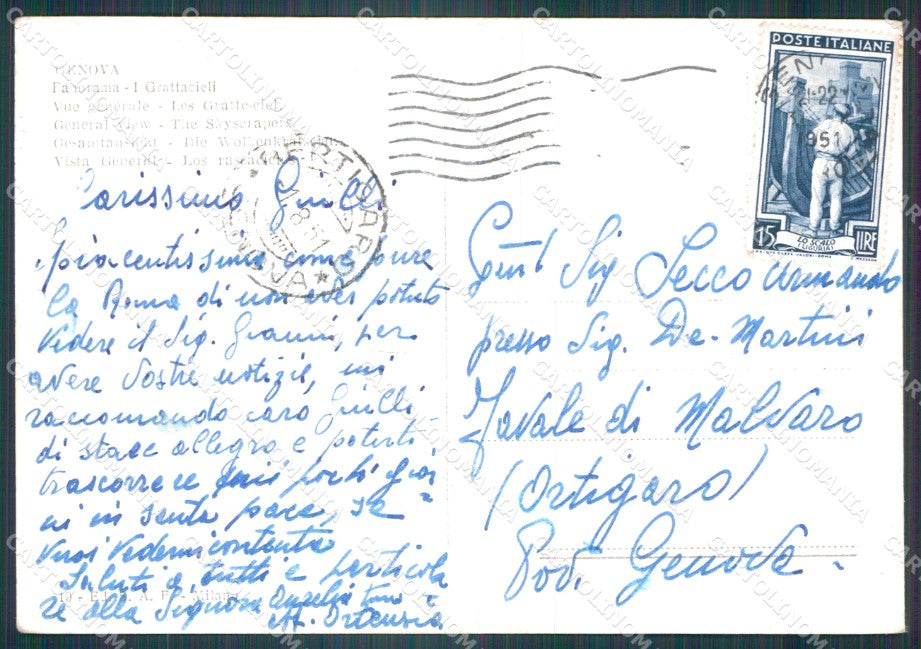 GENOVA
Panorama - I Grattacieli
Vue générale - Les Gratte-ciel
General View - The Skyscrapers
Gesamtansicht - Die Wolkenkratzer
Vista General - Los
Carissimo Giulli
piacentissima come pure
la Roma di non aver potuto
vedere il Sig. Gianni, per
avere Vostre notizie, mi
raccomando caro Giulli
di stare allegro e poterti
trascorrere pochi gior
ni in santa pace, se
vuoi vedermi contenta
Saluti a tutti e particola
re alla Signora Aurelia
Aff. Ortensia
10 - Milano
POSTE ITALIANE
LO SCALO
(LIGURIA)
15 LIRE
1951
Gent Sig Secco Armando
presso Sig. De-Martini
Favale di Malvaro
(Ortigaro)
Prov. Genova
CARTOLINOMANIA